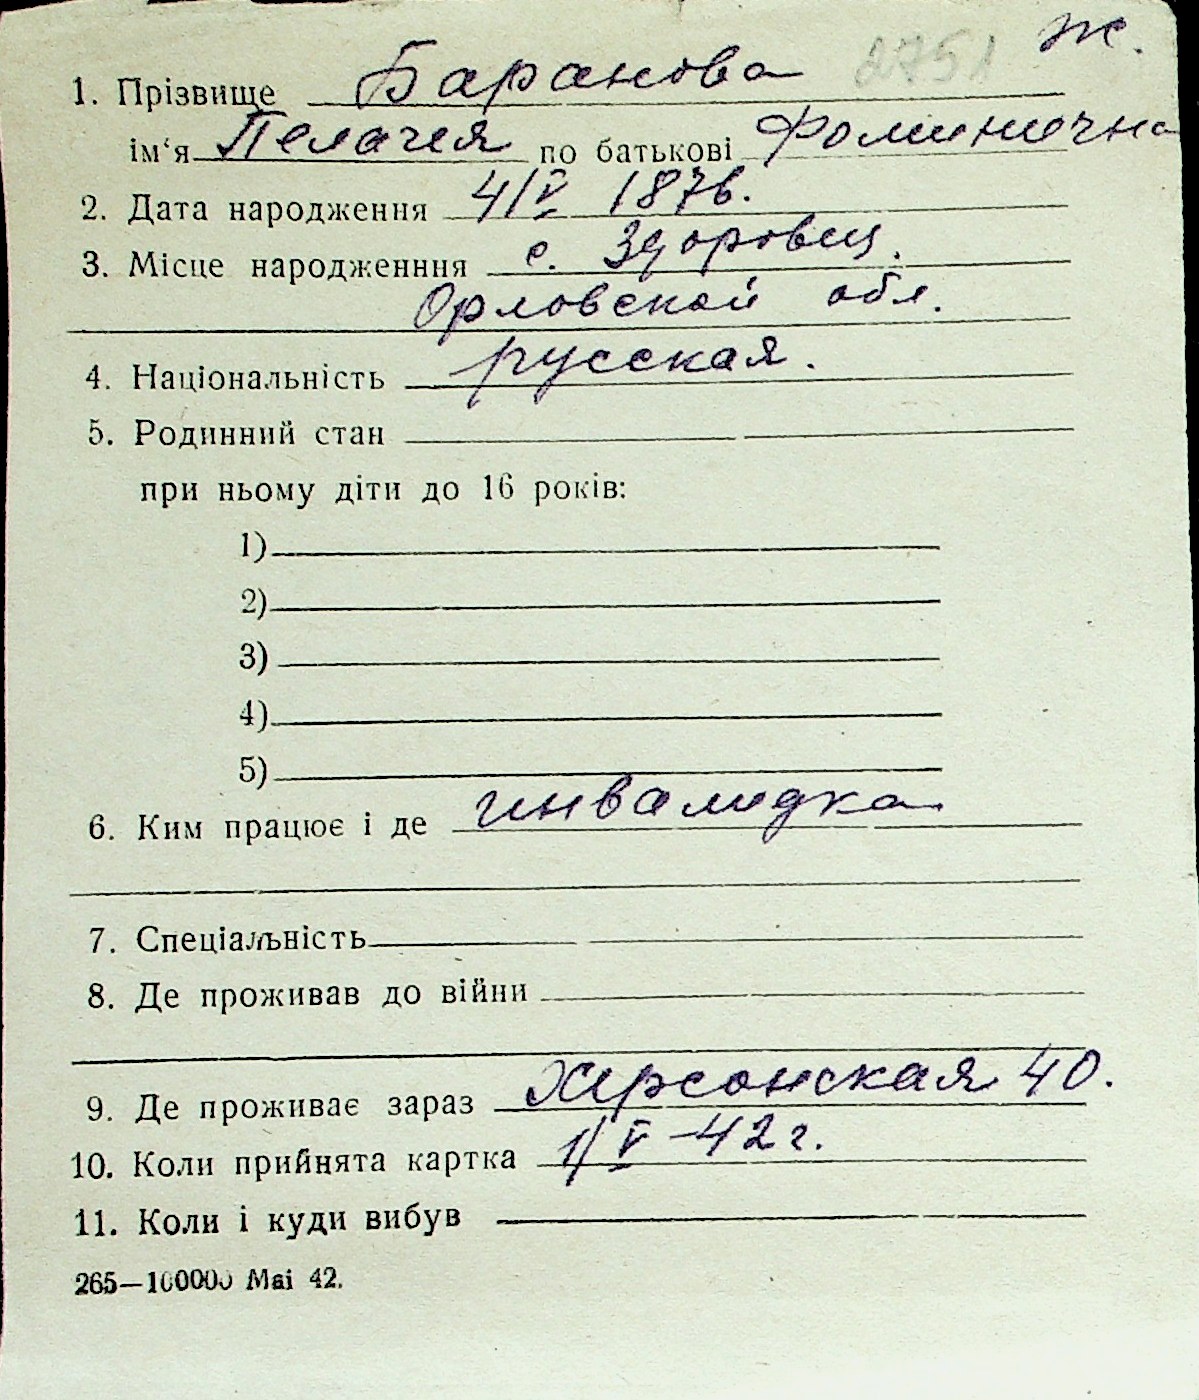 2751 Ж.
1. Прізвище Баранова
ім‘я Пелагея по батькові Фоминична
2. Дата народження 4/V 1876.
3. Місце народженння с. Здоровец.
Орловской обл.
4. Національність русская.
5. Родинний стан
при ньому діти до 16 років:
1)
2)
3)
4)
5)
6. Ким працює і де инвалидка
7. Спеціальність
8. Де проживав до війни
9. Де проживає зараз Херсонская 40.
10. Коли прийнята картка 1/V-42 г.
11. Коли і куди вибув
265—100000 Mai 42.